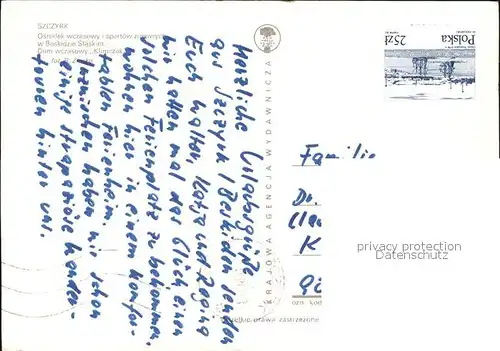 SZCZYRK
Ośrodek wczasowy i sportów zimowych
w Beskidzie Śląskim
Dom wczasowy „Klimczok”
fot.
KRAJOWA AGENCJA WYDAWNICZA
Herzliche Urlaubsgrüße
aus Szczyrk (Beskiden) senden
Euch Walter, Katja und Regina
Wir hatten mal das Glück einen
solchen Ferienplatz zu bekommen.
wohnen hier in einem komfor-
tablen Ferienheim.
Inzwischen haben wir schon
einige strapaziöse Wander-
touren hinter uns.
25 ZŁ
Polska
Familie
Dr.
K
privacy protection
Datenschutz
ozn. kod
Wszelkie prawa zastrzeżone